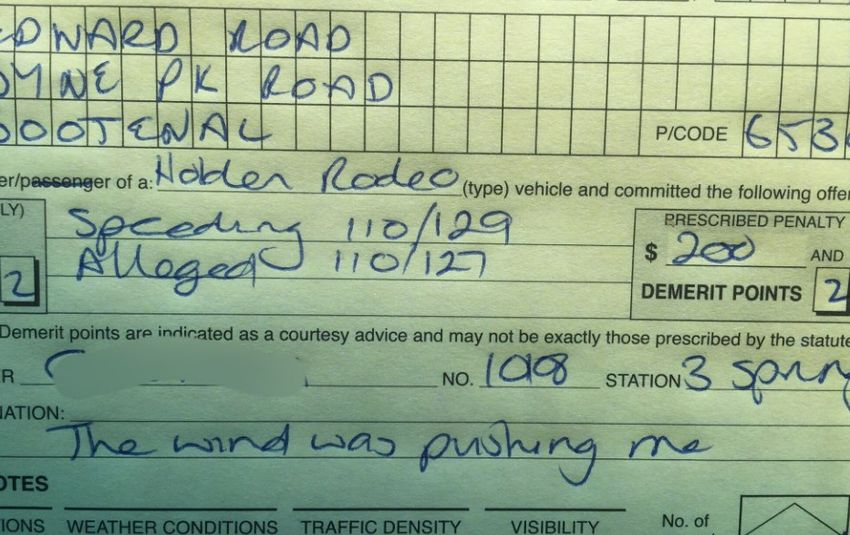 EDWARD ROAD
DYNE PK ROAD
OOTENAL P/CODE 653
er/passenger of a: Holden Rodeo (type) vehicle and committed the following offe
LY) Speeding 110/129 PRESCRIBED PENALTY
$ 200 AND
2 Alleged 110/127 DEMERIT POINTS 2
Demerit points are indicated as a courtesy advice and may not be exactly those prescribed by the statute
R NO. STATION 3 Spring
NATION:
The wind was pushing me
OTES
IONS WEATHER CONDITIONS TRAFFIC DENSITY VISIBILITY No. of